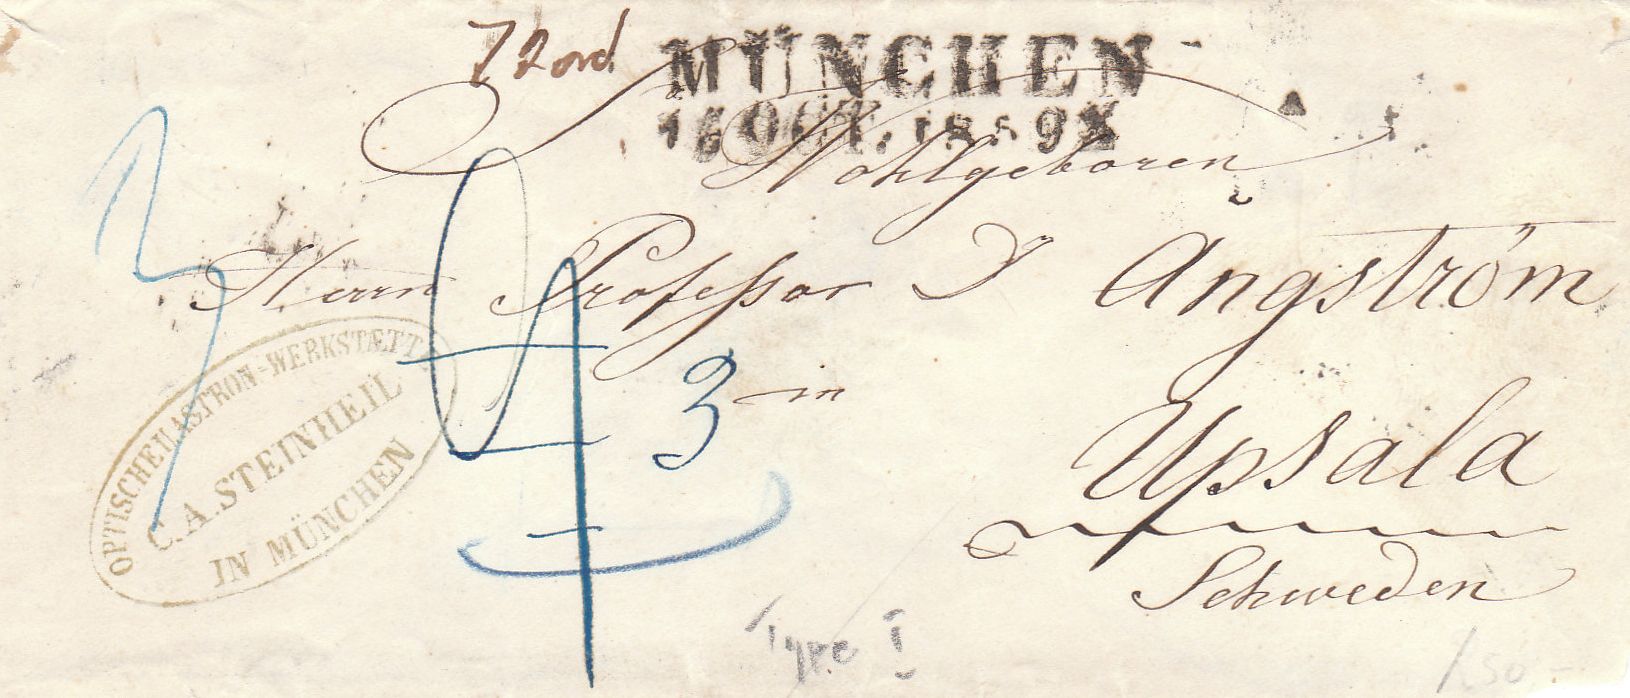 72 ord
MÜNCHEN
OCT. 18
Wohlgeboren
Herrn Professor Dr Ångström
3
Upsala
Schweden
OPTISCHE U ASTRON=WERKSTÆTTE
C. A. STEINHEIL
IN MÜNCHEN
Type I
150-